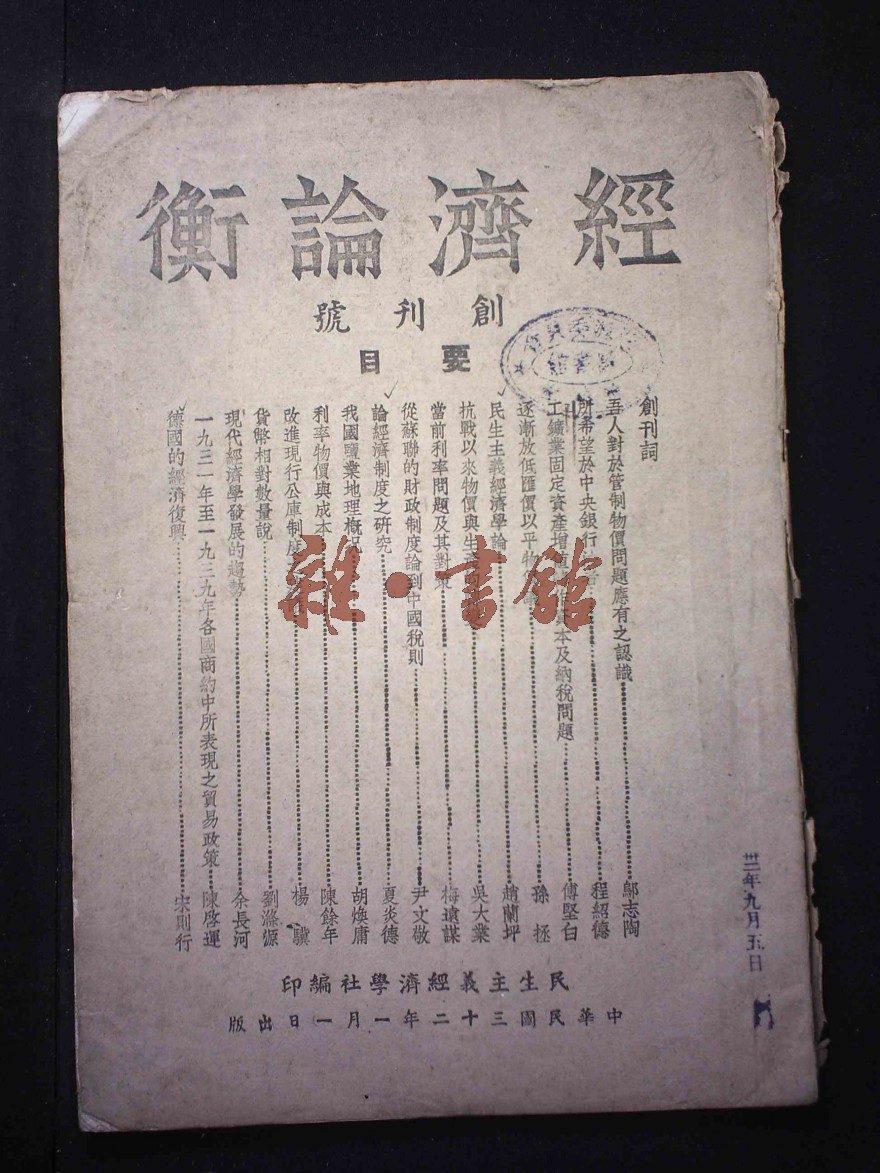 經濟論衡
創刊號
要目
創刊詞
吾人對於管制物價問題應有之認識 鄔志陶
所希望於中央銀行 程紹德
工鑛業固定資產增值 本及納稅問題 傅堅白
逐漸放低匯價以平物 孫拯
民生主義經濟學論 趙蘭坪
抗戰以來物價與生 吳大業
當前利率問題及其對策 梅遠謀
從蘇聯的財政制度論到中國稅則 尹文敬
論經濟制度之研究 夏炎德
我國鹽業地理概況 胡煥庸
利率物價與成本 陳餘年
改進現行公庫制度 楊驥
貨幣相對數量說 劉滌源
現代經濟學發展的趨勢 余長河
一九三一年至一九三九年各國商約中所表現之貿易政策 陳啓運
德國的經濟復興 宋則行
民生主義經濟學社編印
中華民國三十二年一月一日出版
卅二年九月五日
雜·書館